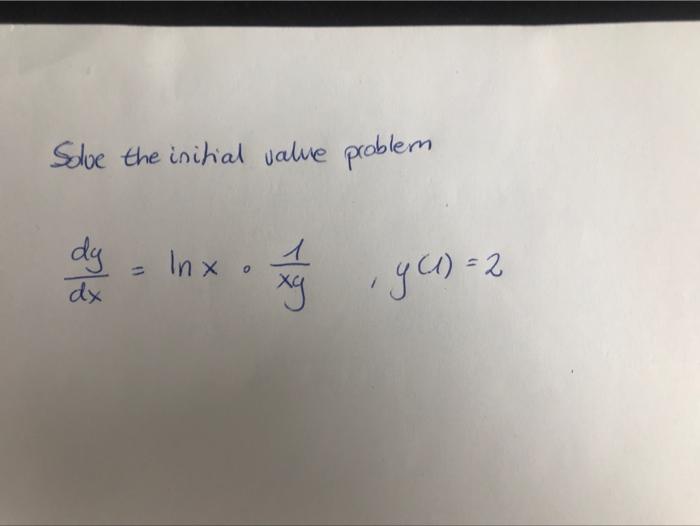 Solve the initial value problem
dy/dx = ln x · 1/xy , y(1) = 2